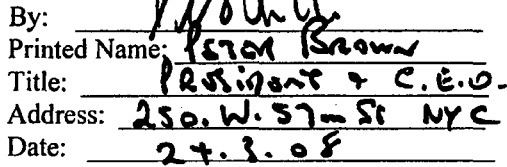 By:
Printed Name: Peter Brown
Title: President + C.E.O.
Address: 250. W. 57th St NYC
Date: 24.3.08